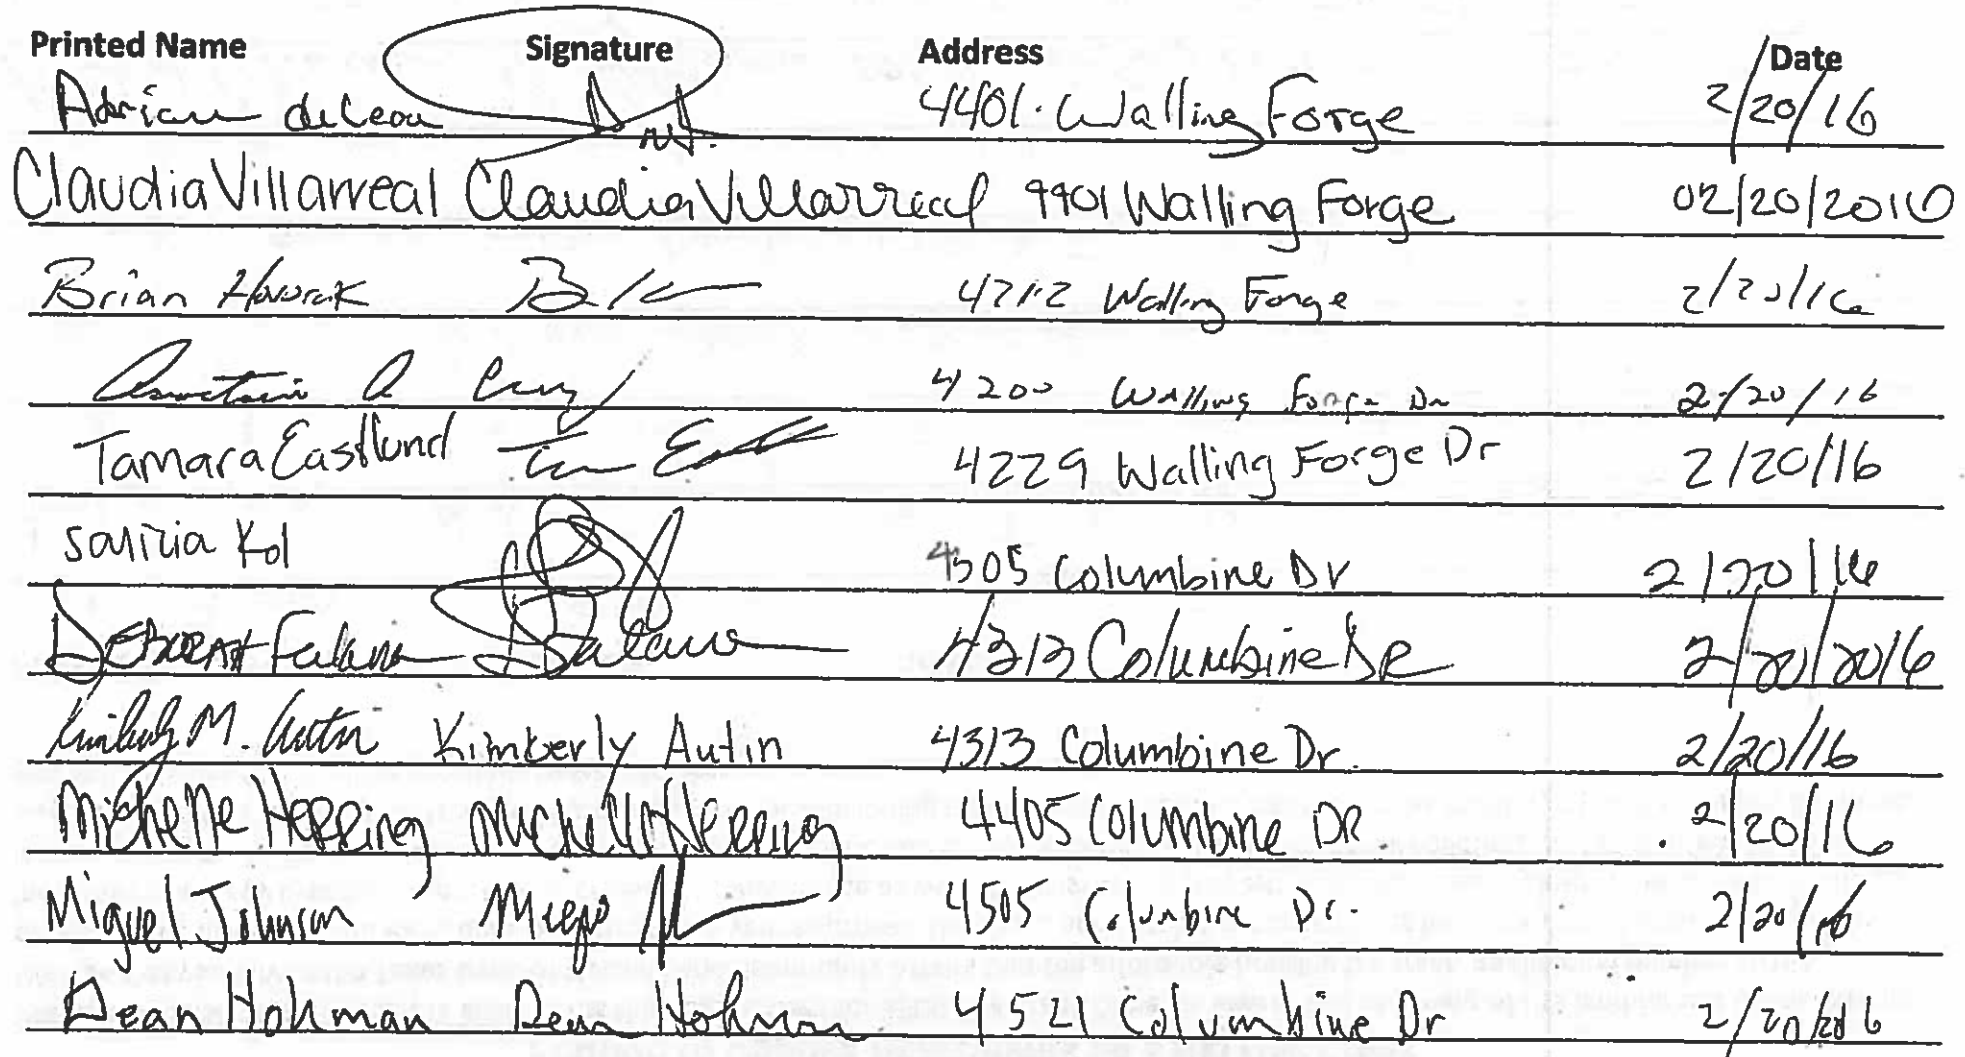 Printed Name Signature Address Date
Adrian deLeon 4401 Walling Forge 2/20/16
Claudia Villarreal Claudia Villarreal 4401 Walling Forge 02/20/2016
Brian 4212 Walling Forge 2/20/16
4200 Walling Forge Dr 2/20/16
Tamara Eastlund 4229 Walling Forge Dr 2/20/16
Kol 4505 Columbine Dr 2/20/16
4313 Columbine DR 2/20/2016
Kimberly M. Autin Kimberly Autin 4313 Columbine Dr. 2/20/16
Michelle Hepping Michelle Hepping 4405 Columbine DR. 2/20/16
Miguel Johnson 4505 Columbine Dr. 2/20/16
Dean Hohman Dean Hohman 4521 Columbine Dr 2/20/2016